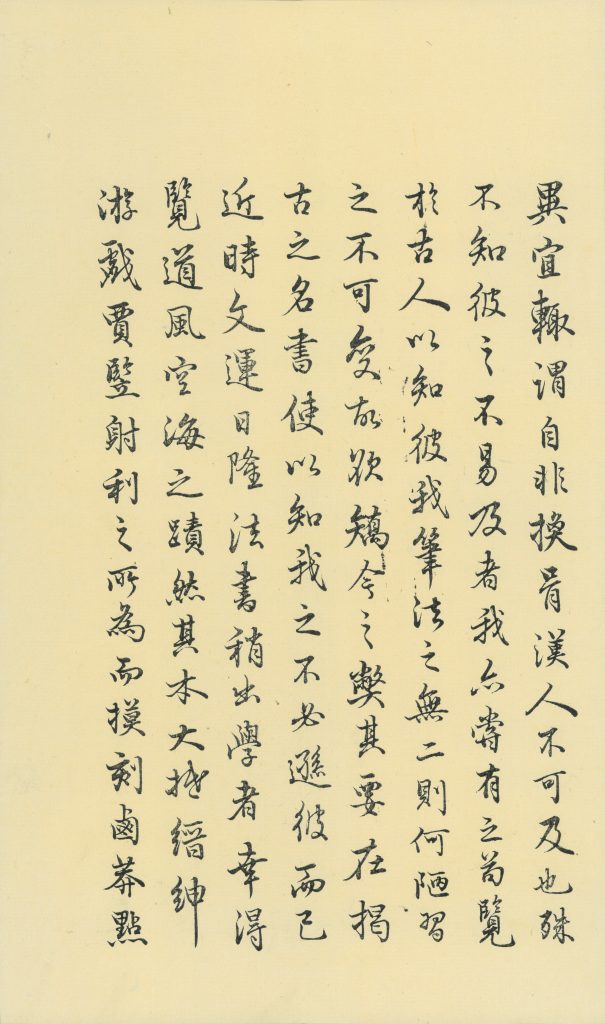 異宜輙謂自非換骨漢人不可及也殊
不知彼之不易及者我亦嘗有之苟覽
於古人以知彼我筆法之無二則何陋習
之不可變故欲矯今之弊其要在揭
古之名書使以知我之不必遜彼而已
近時文運日隆法書稍出學者幸得
覽道風空海之蹟然其本大抵縉紳
游戲賈豎射利之所為而摸刻鹵莽點